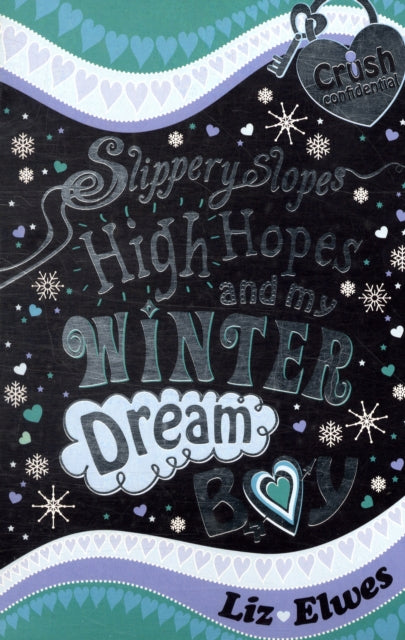 Crush
confidential
Slippery Slopes
High Hopes
and my
WINTER
Dream
Boy
Liz Elwes